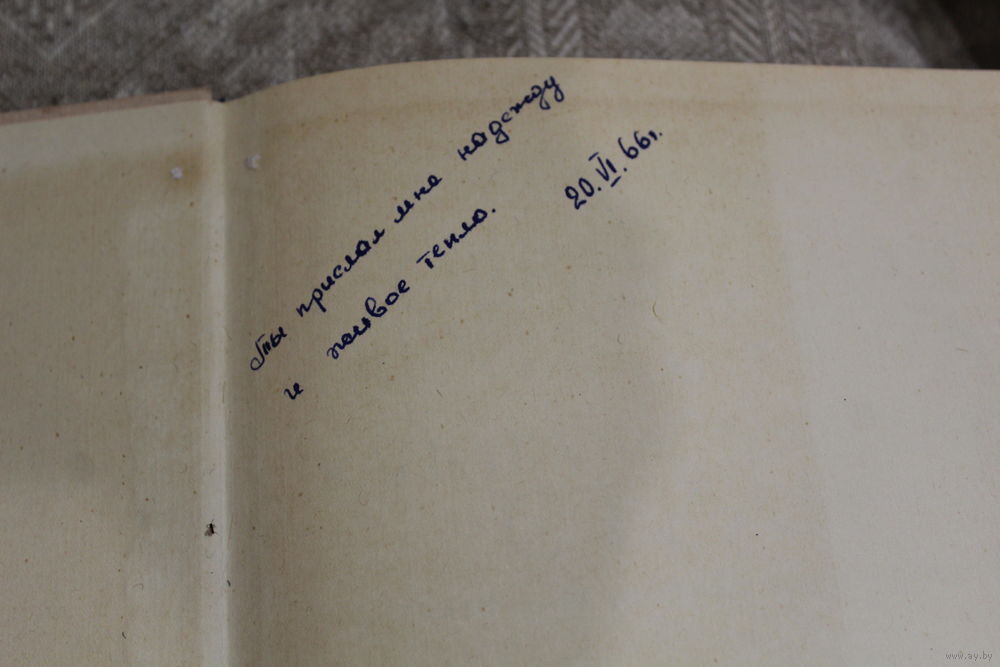 Ты прислал мне надежду
и живое тепло.
20.VI.66г.
www.ay.by